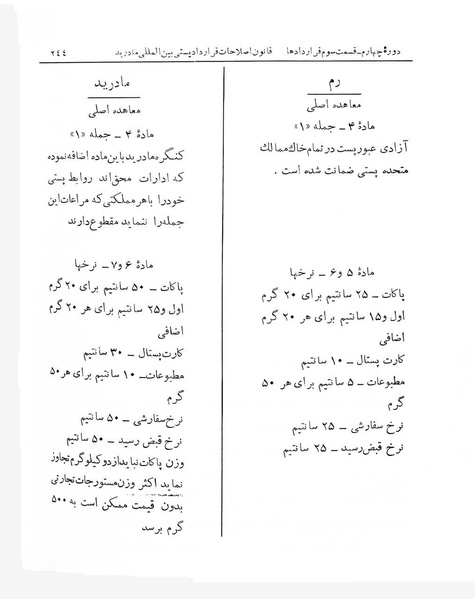 دورهٔ چهارم ـ قسمت سوم قراردادها قانون اصلاحات قرارداد پستی بین‌المللی مادرید ۲۴۴
رم
معاهده اصلی
مادهٔ ۴ ـ جمله «۱»
آزادی عبور پست در تمام خاک ممالک
متحده پستی ضمانت شده است .
مادهٔ ۵ و ۶ ـ نرخها
پاکات ـ ۲۵ سانتیم برای ۲۰ گرم
اول و ۱۵ سانتیم برای هر ۲۰ گرم
اضافی
کارت پستال ـ ۱۰ سانتیم
مطبوعات ـ ۵ سانتیم برای هر ۵۰
گرم
نرخ سفارشی ـ ۲۵ سانتیم
نرخ قبض رسید ـ ۲۵ سانتیم
مادرید
معاهده اصلی
مادهٔ ۴ ـ جمله «۱»
کنگره مادرید باین ماده اضافه نموده
که ادارات محق‌اند روابط پستی
خود را با هر مملکتی که مراعات این
جمله را ننماید مقطوع دارند
مادهٔ ۶ و ۷ ـ نرخها
پاکات ـ ۵۰ سانتیم برای ۲۰ گرم
اول و ۲۵ سانتیم برای هر ۲۰ گرم
اضافی
کارت پستال ـ ۳۰ سانتیم
مطبوعات ـ ۱۰ سانتیم برای هر ۵۰
گرم
نرخ سفارشی ـ ۵۰ سانتیم
نرخ قبض رسید ـ ۵۰ سانتیم
وزن پاکات نباید از دو کیلو گرم تجاوز
نماید اکثر وزن مستورجات تجارتی
بدون قیمت ممکن است به ۵۰۰
گرم برسد